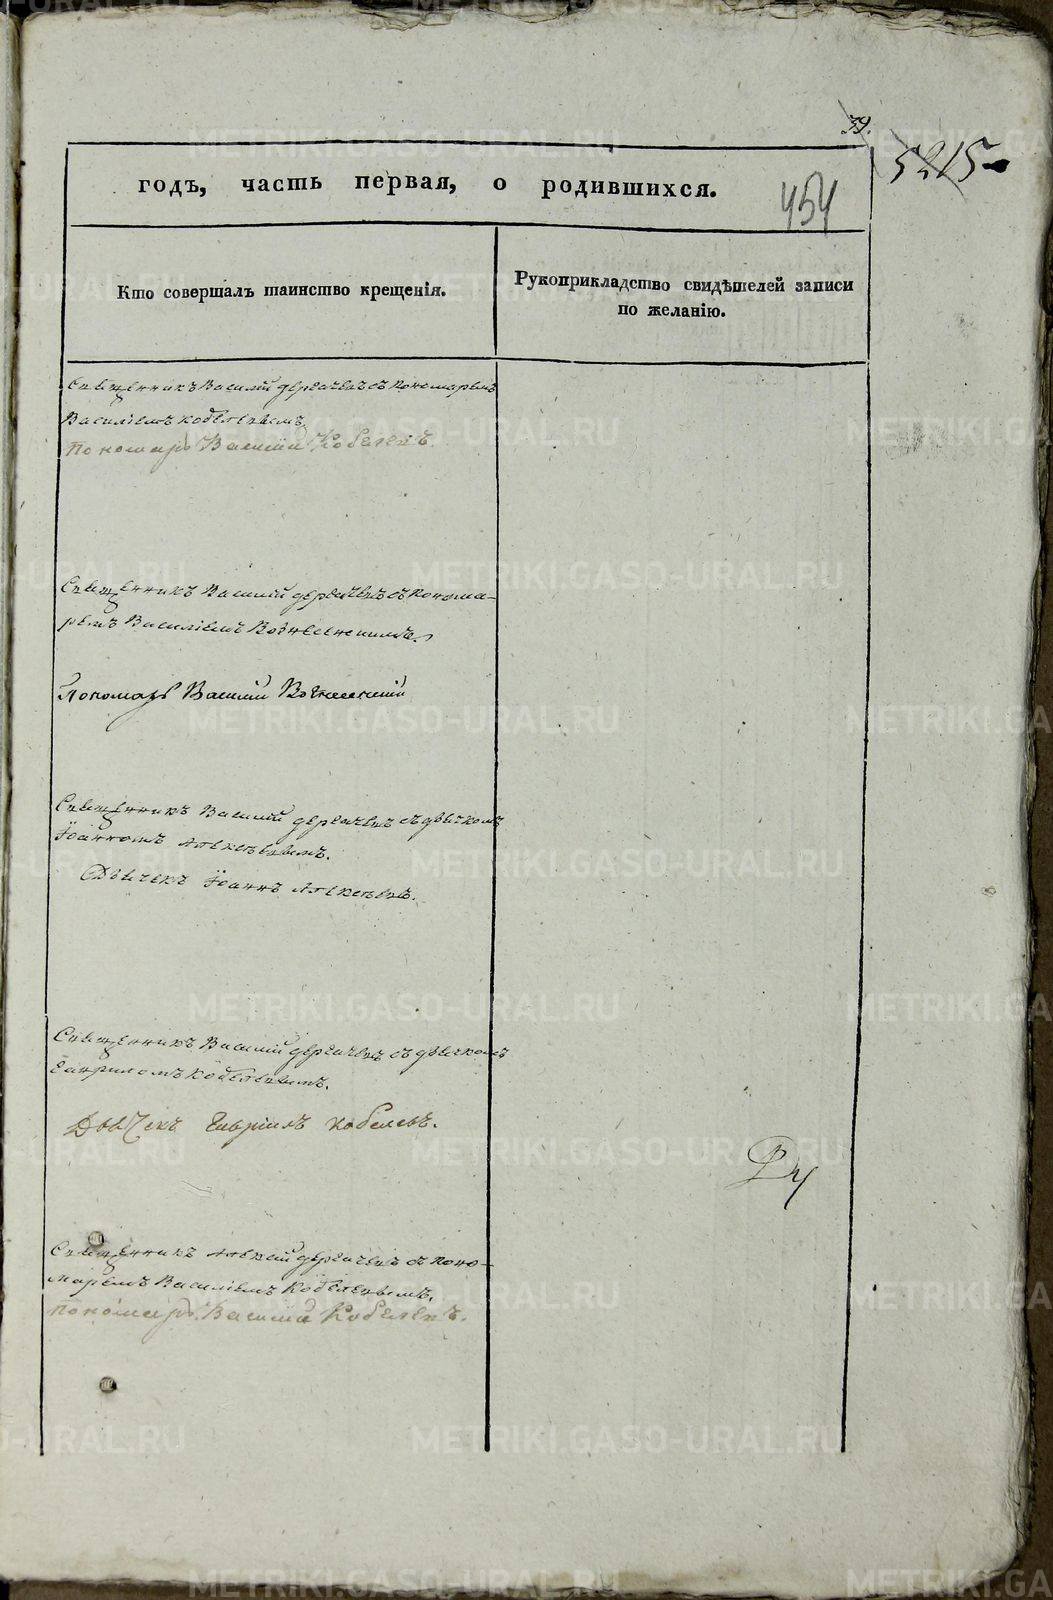 39.
5215
годъ, часть первая, о родившихся.
454
Кто совершалъ таинство крещенія.
Рукоприкладство свидѣтелей записи
по желанію.
Священникъ Василій Дергачевъ съ пономаремъ
Василіемъ Кобелевымъ
Пономарь Василій Кобелевъ
Священникъ Василій Дергачевъ съ понома-
ремъ Василіемъ Вознесенскимъ
Пономарь Василій Вознесенскій
Священникъ Василій Дергачевъ съ дьячкомъ
Іоанномъ Алексѣевымъ.
Дьячекъ Іоаннъ Алексѣевъ.
Священникъ Василій Дергачевъ съ дьячкомъ
Гавриломъ Кобелевымъ.
Дьячекъ Гавріилъ Кобелевъ.
Священникъ Алексѣй Дергачевъ съ поно-
маремъ Василіемъ Кобелевымъ.
пономарь Василій Кобелевъ.
METRIKI.GASO-URAL.RU